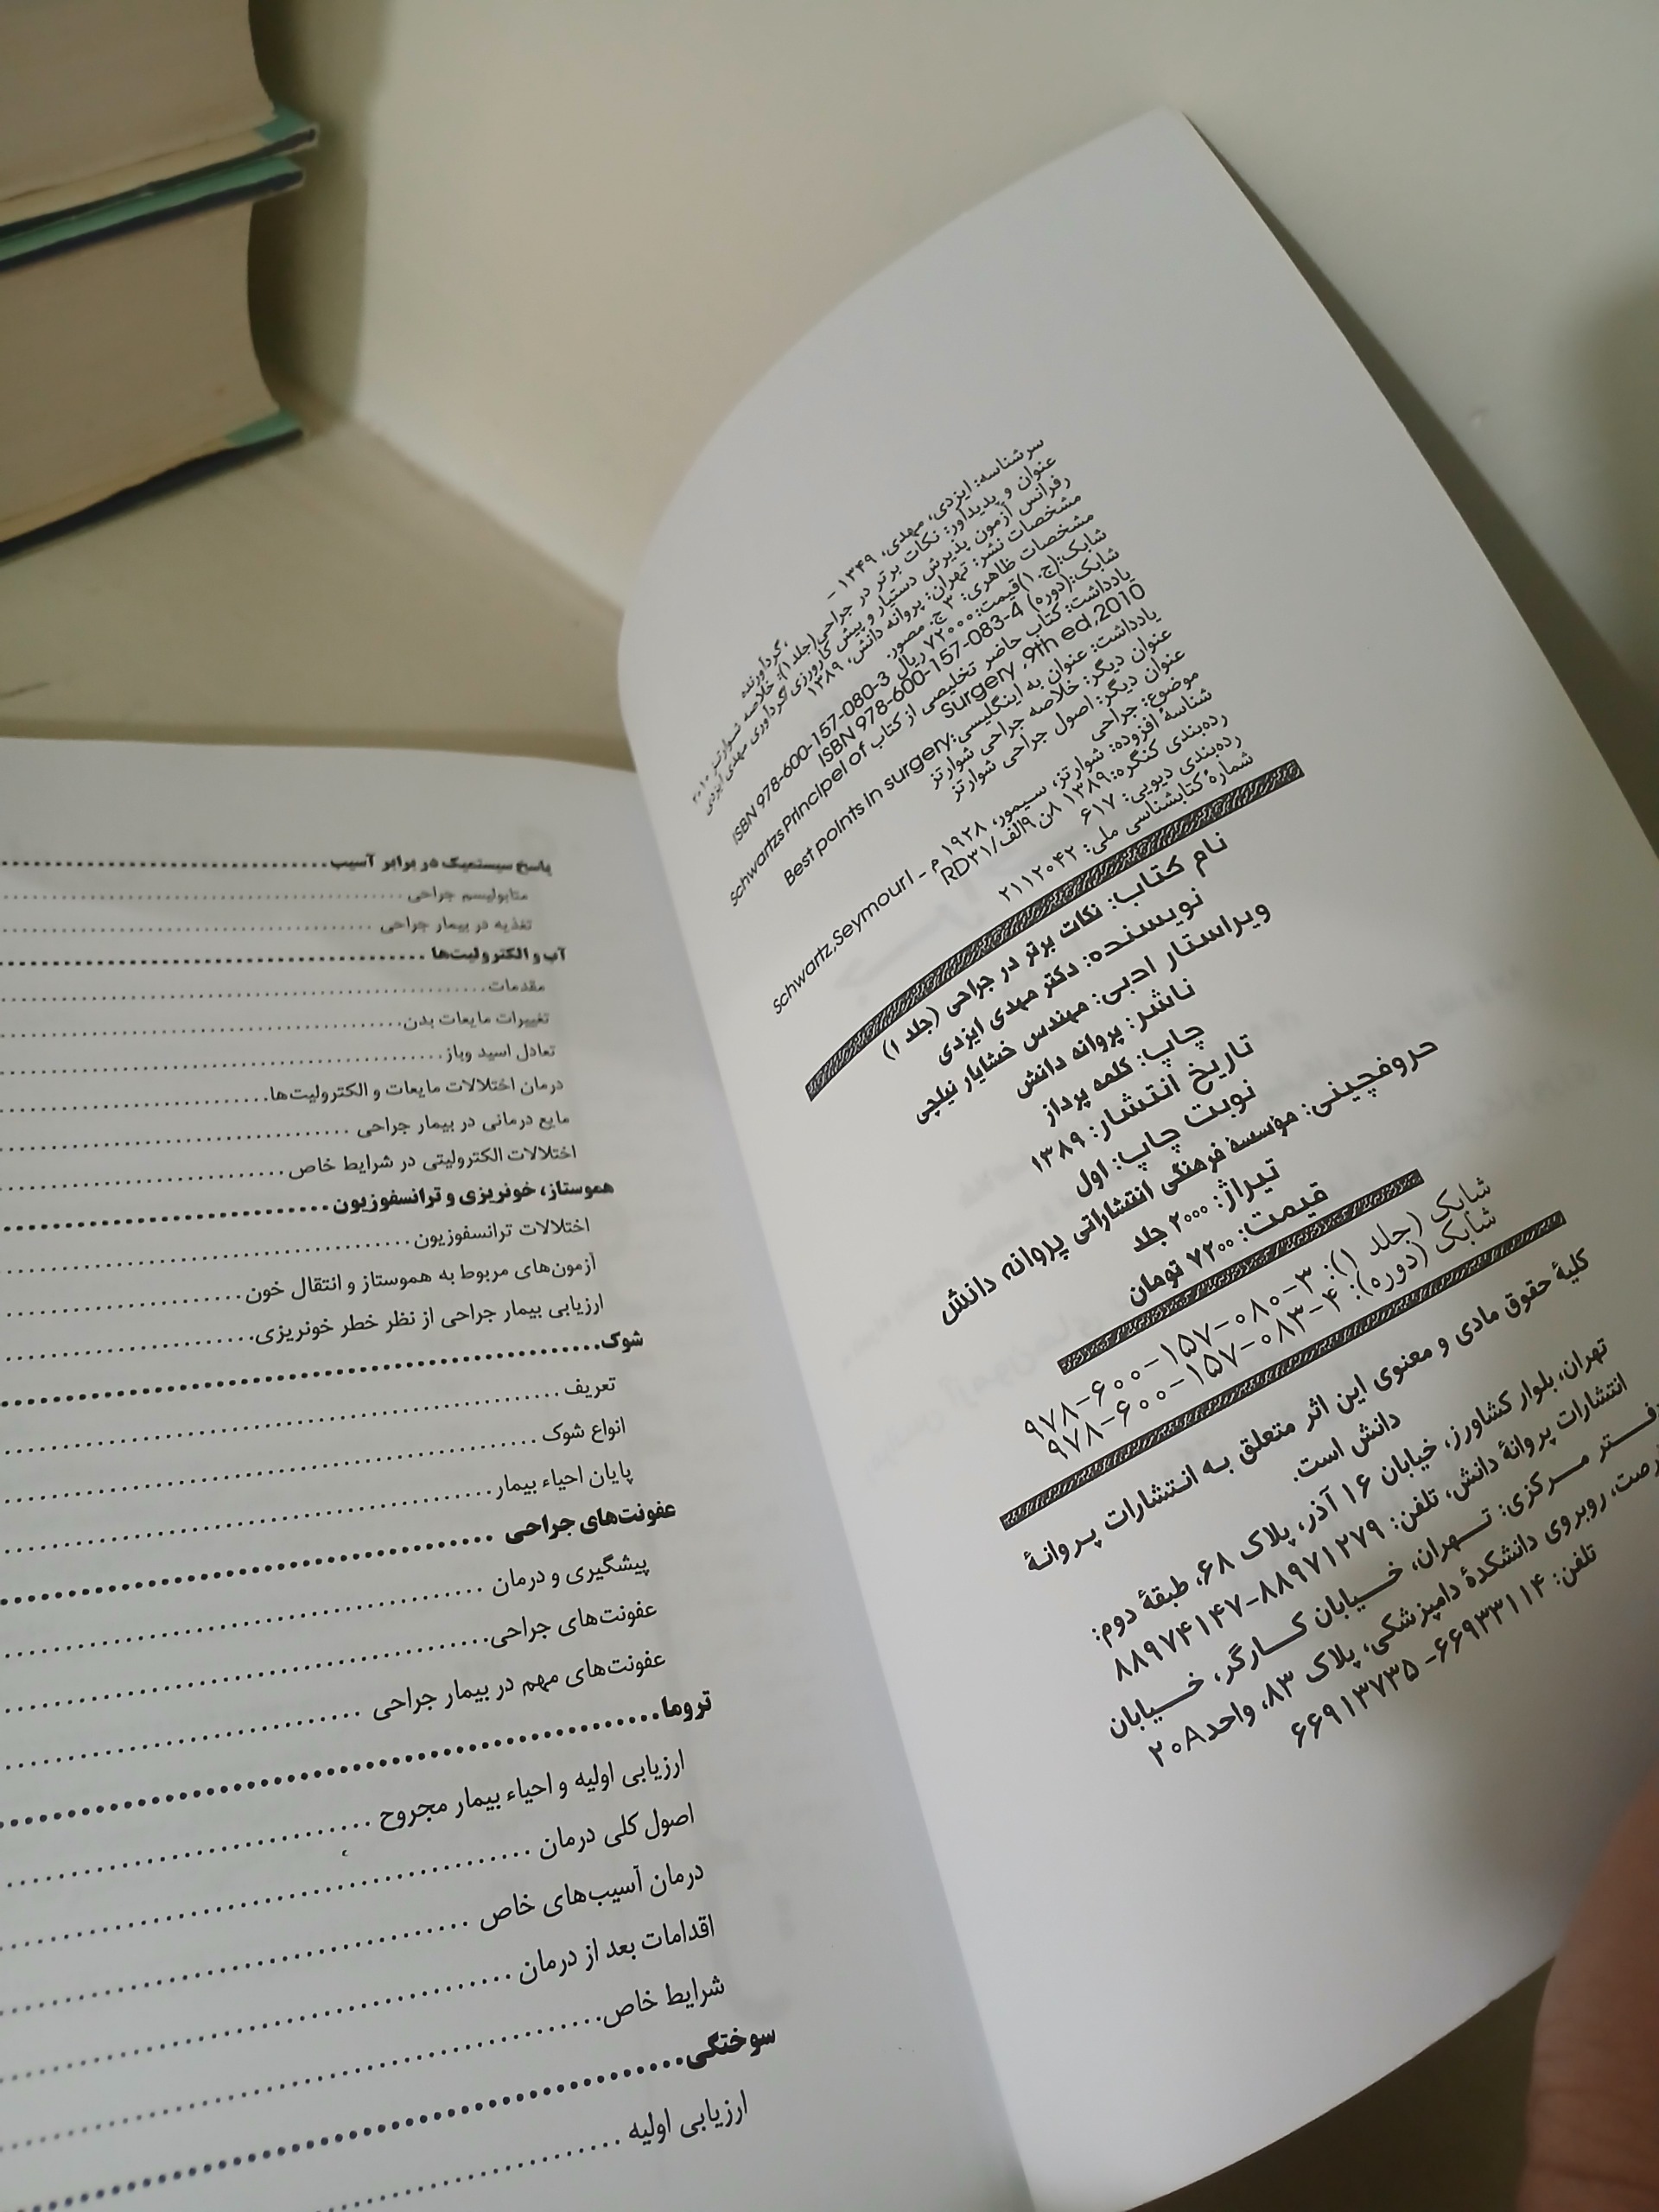 سرشناسه: ایزدی، مهدی، ۱۳۴۹ -
عنوان و پدیدآور: نکات برتر در جراحی(جلد۱): خلاصه شوارتز ۲۰۱۰
رفرانس آزمون پذیرش دستیار و پیش کارورزی/گردآوری مهدی ایزدی
،گردآورنده
مشخصات نشر: تهران: پروانه دانش، ۱۳۸۹
مشخصات ظاهری: ۳ ج. مصور.
شابک:(ج.۱)قیمت:۷۲۰۰۰ ریال ISBN 978-600-157-080-3
شابک:(دوره) ISBN 978-600-157-083-4
یادداشت: کتاب حاضر تخلیصی از کتاب Schwartzs Principel of
Surgery ,9th ed,2010
یادداشت: عنوان به اینگلیسی:Best points in surgery
عنوان دیگر: خلاصه جراحی شوارتز
عنوان دیگر: اصول جراحی شوارتز
موضوع: جراحی
شناسهٔ افزوده: شوارتز، سیمور، ۱۹۲۸ م – Schwartz,Seymourl
رده‌بندی کنگره:۱۳۸۹ ۸ن۹الف/RD۳۱
رده‌بندی دیویی: ۶۱۷
شمارهٔ کتابشناسی ملی: ۲۱۱۲۰۴۲
نام کتاب: نکات برتر در جراحی (جلد ۱)
نویسنده: دکتر مهدی ایزدی
ویراستار ادبی: مهندس خشایار نیلچی
ناشر: پروانه دانش
چاپ: کلمه پرداز
تاریخ انتشار: ۱۳۸۹
نوبت چاپ: اول
حروفچینی: مؤسسهٔ فرهنگی انتشاراتی پروانه دانش
تیراژ: ۲۰۰۰ جلد
قیمت: ۷۲۰۰ تومان
شابک (جلد ۱): ۳-۰۸۰-۱۵۷-۶۰۰-۹۷۸
شابک (دوره): ۴-۰۸۳-۱۵۷-۶۰۰-۹۷۸
کلیهٔ حقوق مادی و معنوی این اثر متعلق به انتشارات پروانهٔ
دانش است.
تهران، بلوار کشاورز، خیابان ۱۶ آذر، پلاک ۶۸، طبقهٔ دوم:
انتشارات پروانهٔ دانش، تلفن: ۸۸۹۷۱۲۷۹-۸۸۹۷۴۱۴۷
دفتر مرکزی: تهران، خیابان کارگر، خیابان
روبروی دانشکدهٔ دامپزشکی، پلاک ۸۳، واحد ۲۰۸
تلفن: ۶۶۹۳۳۱۱۴- ۶۶۹۱۳۷۳۵
پاسخ سیستمیک در برابر آسیب
متابولیسم جراحی
تغذیه در بیمار جراحی
آب و الکترولیت‌ها
مقدمات
تغییرات مایعات بدن
تعادل اسید وباز
درمان اختلالات مایعات و الکترولیت‌ها
مایع درمانی در بیمار جراحی
اختلالات الکترولیتی در شرایط خاص
هموستاز، خونریزی و ترانسفوزیون
اختلالات ترانسفوزیون
آزمون‌های مربوط به هموستاز و انتقال خون
ارزیابی بیمار جراحی از نظر خطر خونریزی
شوک
تعریف
انواع شوک
پایان احیاء بیمار
عفونت‌های جراحی
پیشگیری و درمان
عفونت‌های جراحی
عفونت‌های مهم در بیمار جراحی
تروما
ارزیابی اولیه و احیاء بیمار مجروح
اصول کلی درمان
درمان آسیب‌های خاص
اقدامات بعد از درمان
شرایط خاص
سوختگی
ارزیابی اولیه